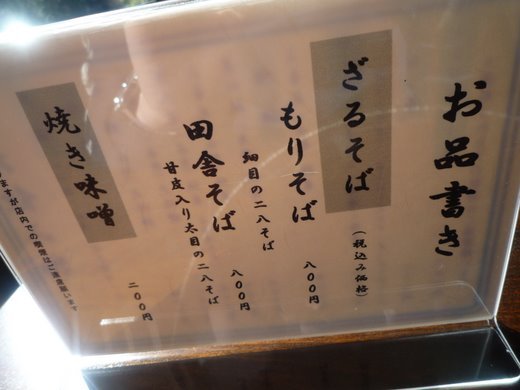 お品書き
ざるそば
(税込み価格)
もりそば
八〇〇円
細目の二八そば
田舎そば
八〇〇円
甘皮入り太目の二八そば
焼き味噌
二〇〇円
ますが店内での喫煙はご遠慮願います